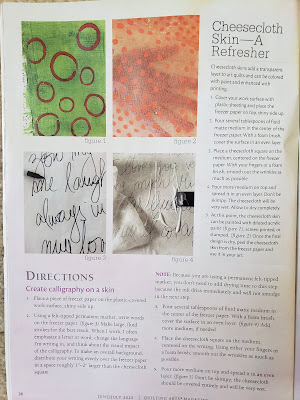 Cheesecloth
Skin—A
Refresher
Cheesecloth skins add a transparent
layer to art quilts and can be colored
with paint and enhanced with
printing.
1. Cover your work surface with
plastic sheeting and place the
freezer paper on top, shiny side up.
2. Pour several tablespoons of fluid
matte medium in the center of the
freezer paper. With a foam brush,
cover the surface in an even layer.
3. Place a cheesecloth square on the
medium, centered on the freezer
paper. With your fingers or a foam
brush, smooth out the wrinkles as
much as possible.
4. Pour more medium on top and
spread it in an even layer. Don't be
skimpy. The cheesecloth will be
very wet. Allow to dry completely.
5. At this point, the cheesecloth skin
can be painted with diluted acrylic
paint (figure 1), screen printed, or
stamped. (figure 2) Once the final
design is dry, peel the cheesecloth
skin from the freezer paper and
use it in your art.
figure 1
figure 2
figure 3
figure 4
me laugh
always
Directions
Create calligraphy on a skin
1. Place a piece of freezer paper on the plastic-covered
work surface, shiny side up.
2. Using a felt-tipped permanent marker, write words
on the freezer paper. (figure 3) Make large, fluid
strokes for the best result. When I work, I often
emphasize a letter or word, change the language
I'm writing in, and think about the visual impact
of the calligraphy. To make an overall background,
distribute your writing evenly over the freezer paper
in a space roughly 1"–2" larger than the cheesecloth
square.
NOTE: Because you are using a permanent felt-tipped
marker, you don't need to add drying time to this step
because the ink dries immediately and will not smudge
in the next step.
3. Pour several tablespoons of fluid matte medium in
the center of the freezer paper. With a foam brush,
cover the surface in an even layer. (figure 4) Add
more medium, if needed.
4. Place the cheesecloth square on the medium,
centered on the writing. Using either your fingers or
a foam brush, smooth out the wrinkles as much as
possible.
5. Pour more medium on top and spread it in an even
layer. (figure 5) Don't be skimpy; the cheesecloth
should be covered entirely and will be very wet.
38
JUNE/JULY 2020 | QUILTING ARTS MAGAZINE